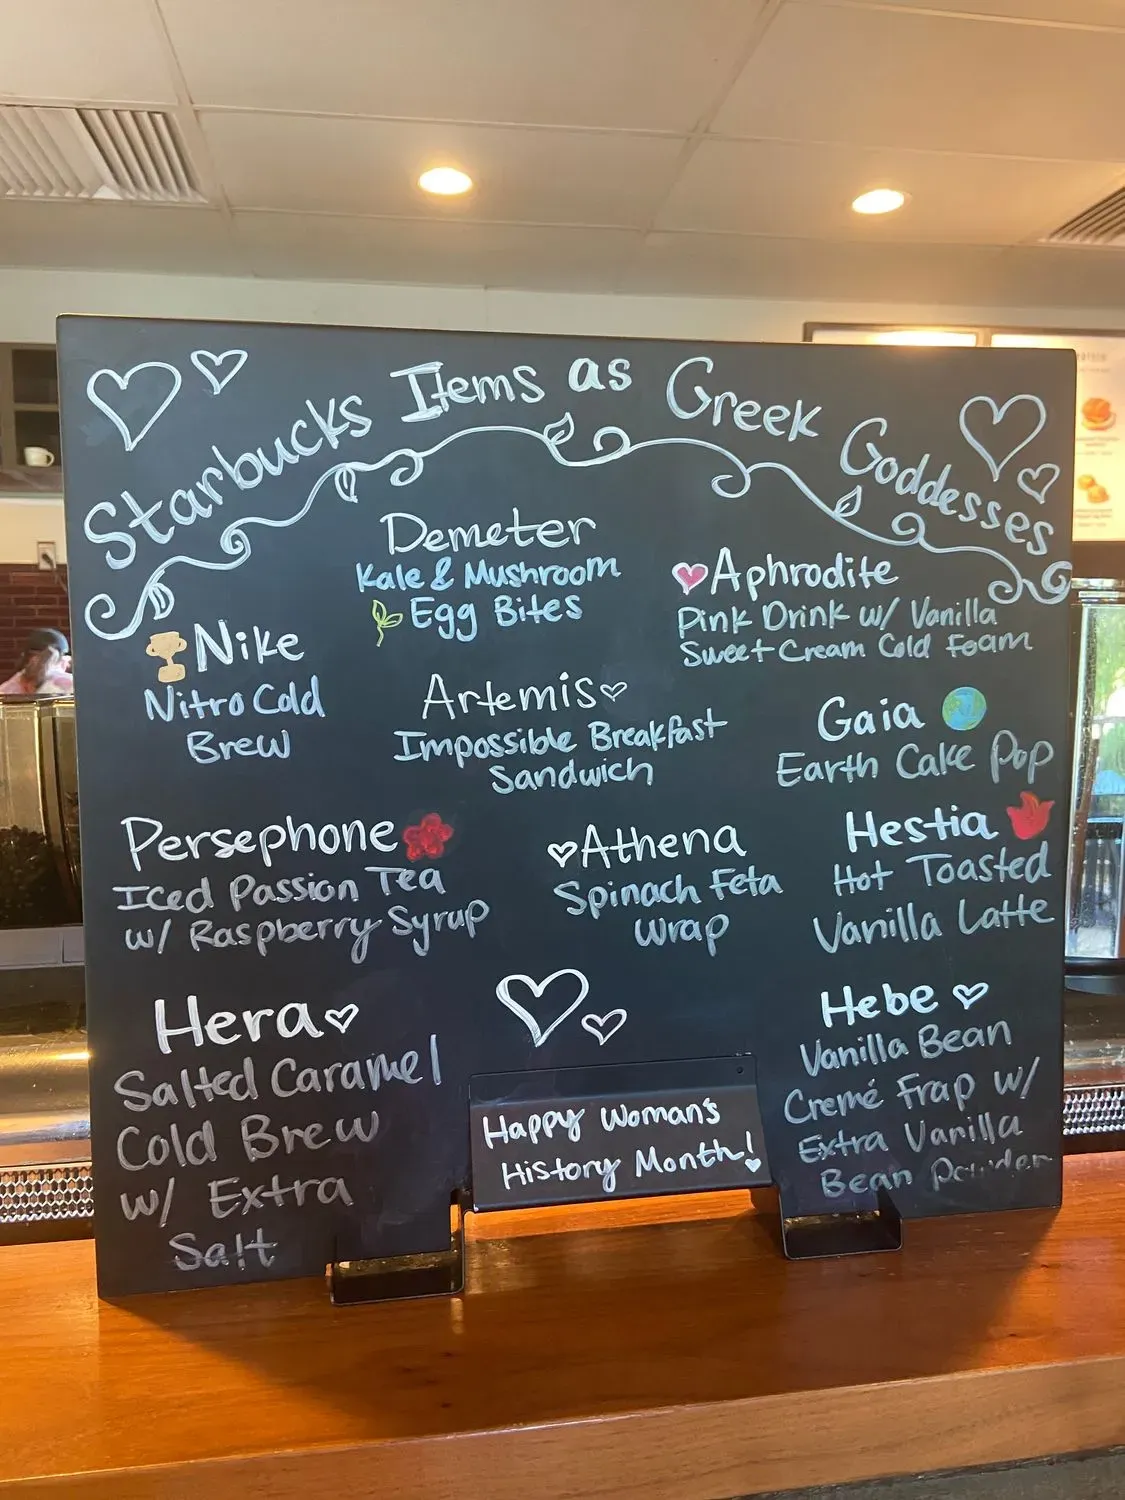 Starbucks Items as Greek Goddesses
Demeter
Kale & Mushroom
Egg Bites
Aphrodite
Pink Drink w/ Vanilla
Sweet Cream Cold Foam
Nike
Nitro Cold
Brew
Artemis
Impossible Breakfast
Sandwich
Gaia
Earth Cake Pop
Persephone
Iced Passion Tea
w/ Raspberry Syrup
Athena
Spinach Feta
Wrap
Hestia
Hot Toasted
Vanilla Latte
Hera
Salted Caramel
Cold Brew
w/ Extra
Salt
Hebe
Vanilla Bean
Cremé Frap w/
Extra Vanilla
Bean Powder
Happy Woman's
History Month!